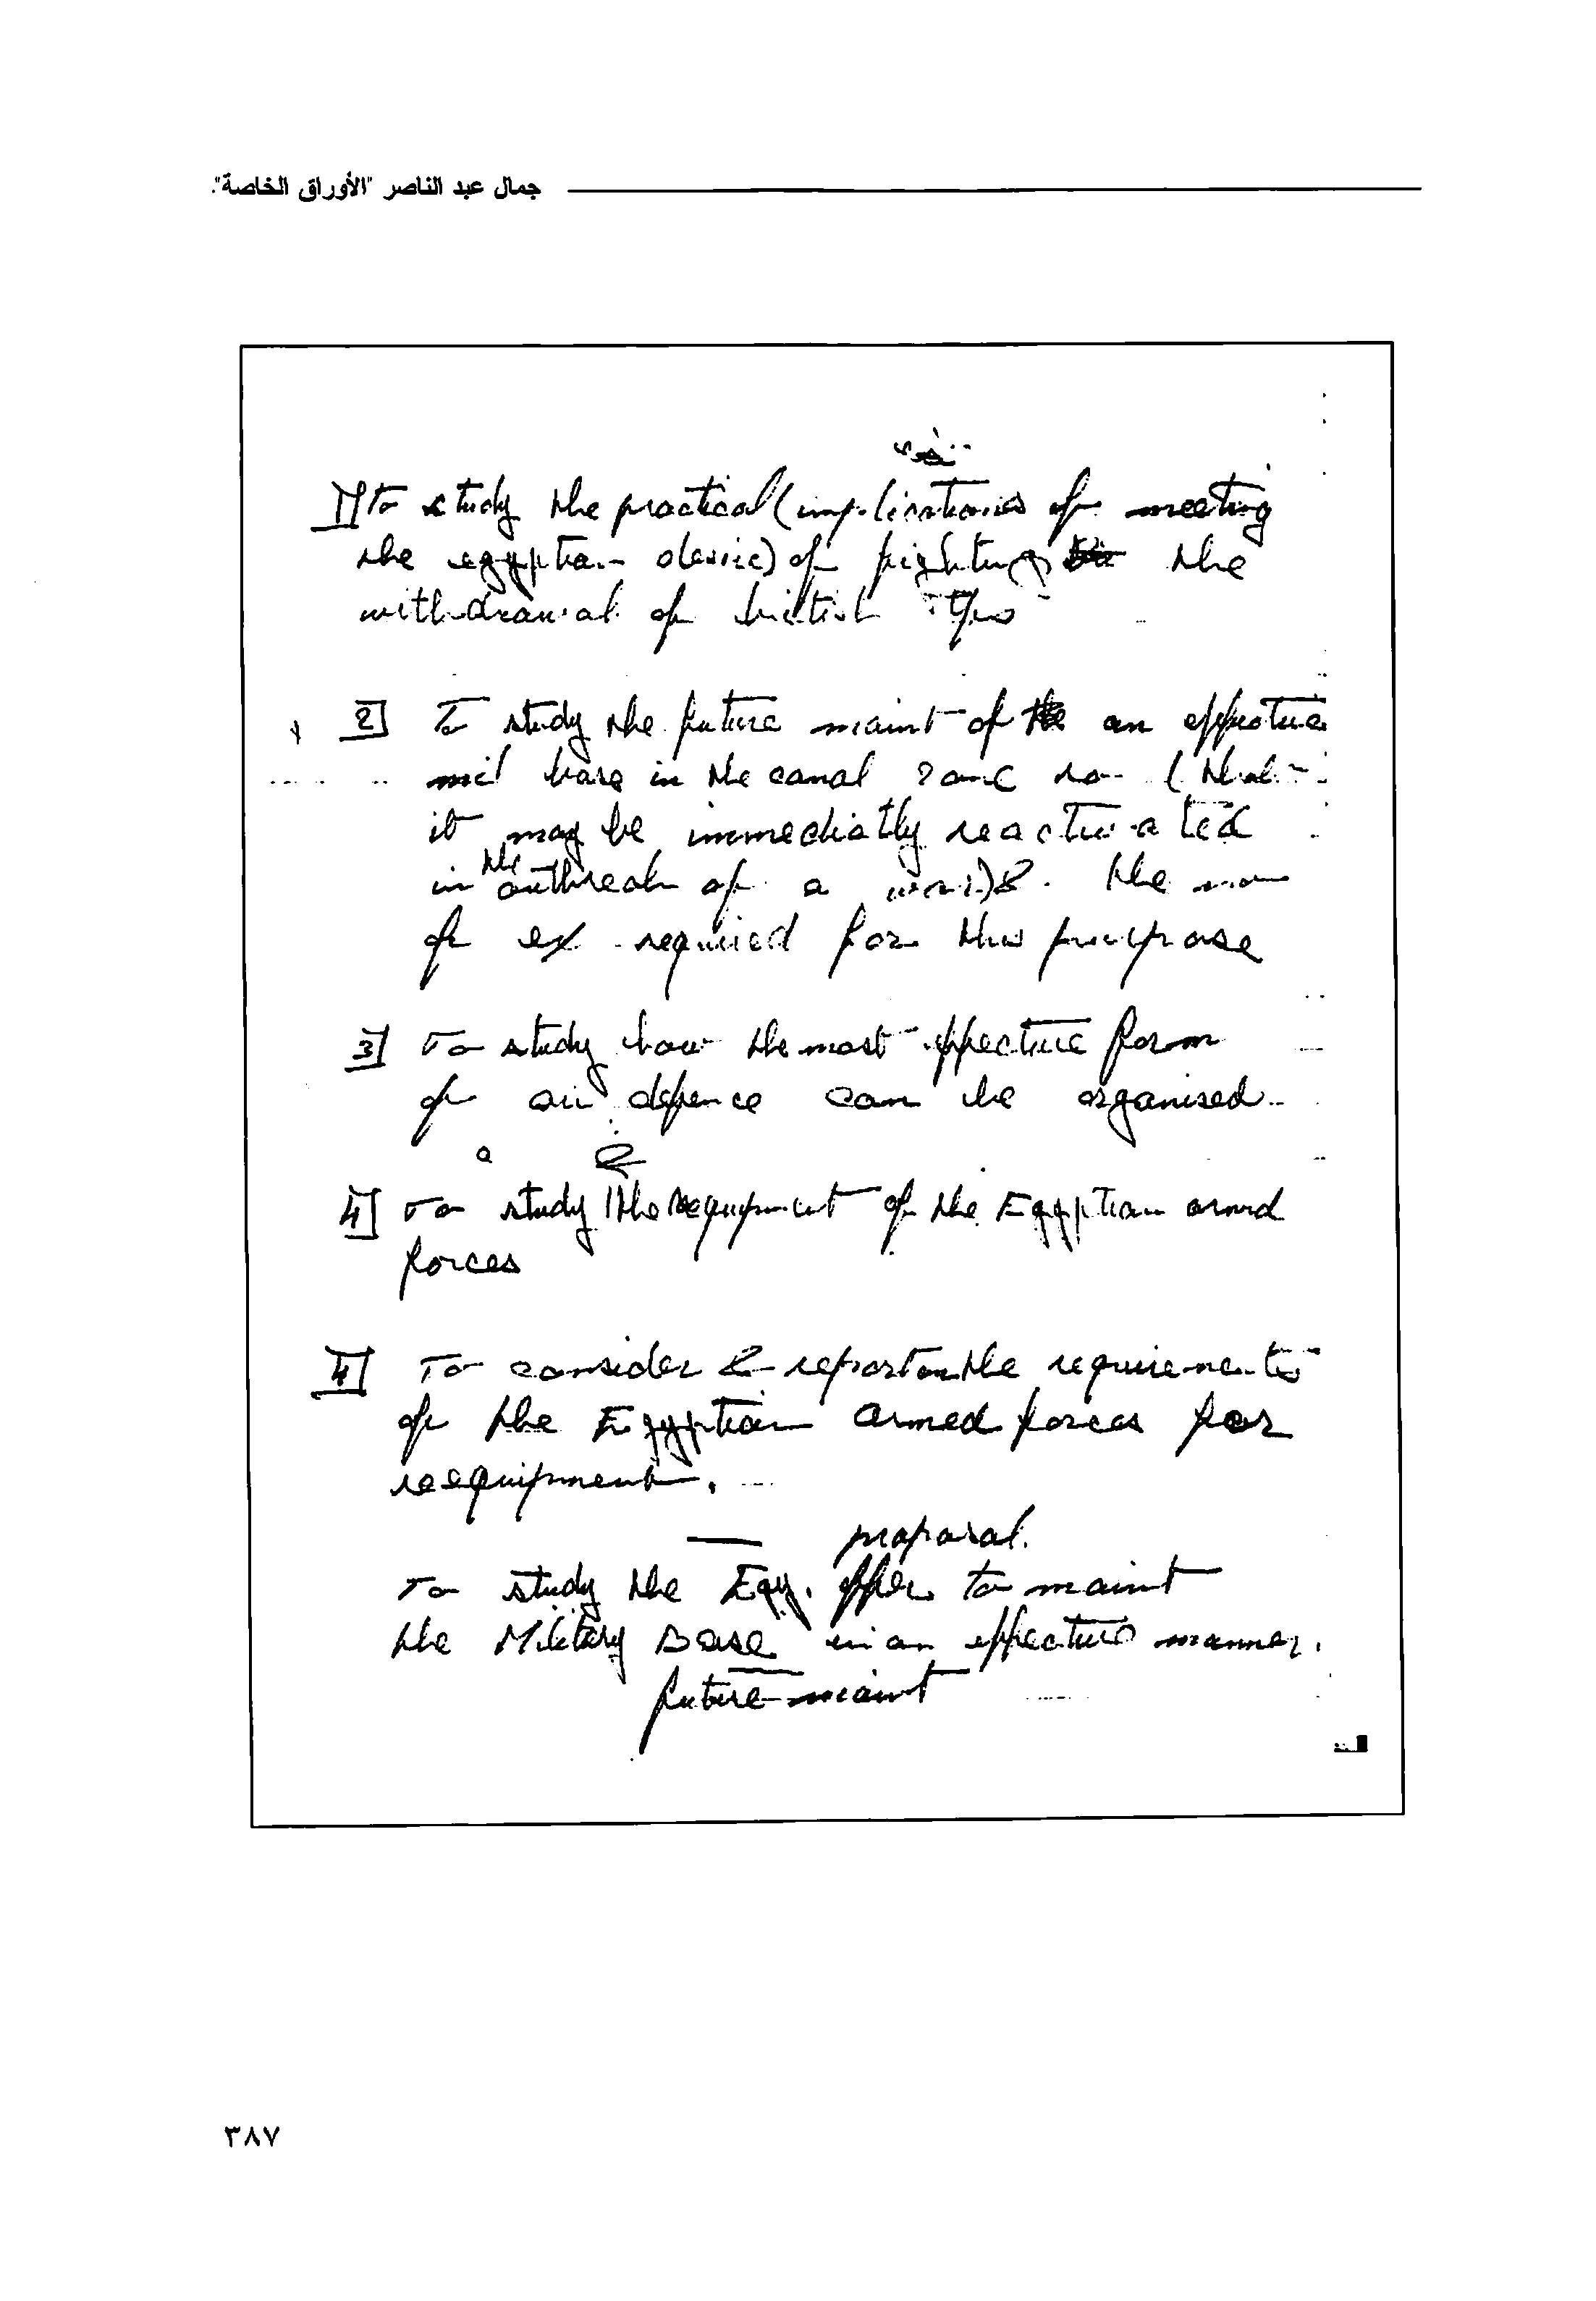 جمال عبد الناصر "الأوراق الخاصة".
1] To study the practical (implications of meeting
the egyptian desire) of the
withdrawal of british
2] To study the future maint of an effective
mil base in the canal zone so (that
it may be immediatly reactivated
in the outbreak of a war) & the no
of ex required for this purpose
3] To study how the most effective form
of air defence can be organised
a
4] To study the requipment of the Egyptian armed
forces
4] To consider & report on the requirements
of the Egyptian armed forces for
reequipment.
proposal.
To study the Egy. offer to maint
the Military Base in an effective manner.
future maint
٣٨٧